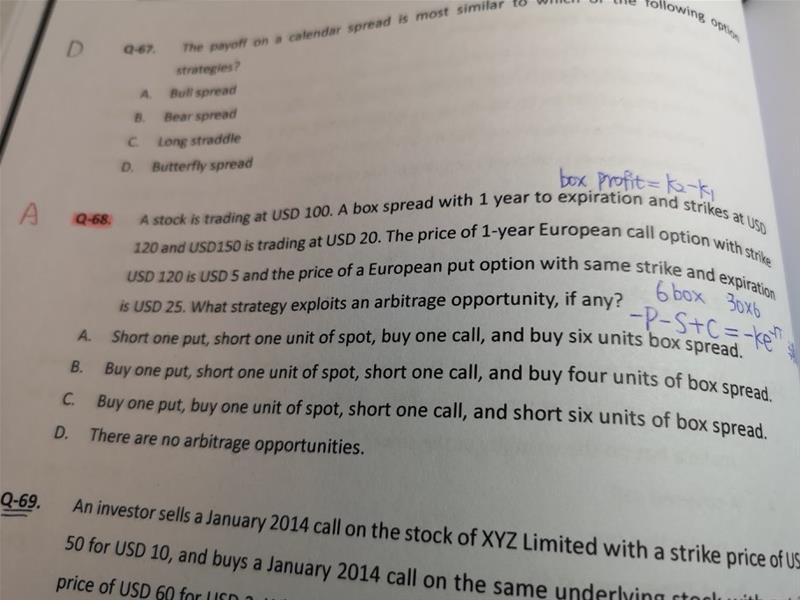 D Q-67. The payoff on a calendar spread is most similar to which of the following option
strategies?
A. Bull spread
B. Bear spread
C. Long straddle
D. Butterfly spread
box profit = K2-K1
A Q-68. A stock is trading at USD 100. A box spread with 1 year to expiration and strikes at USD
120 and USD150 is trading at USD 20. The price of 1-year European call option with strike
USD 120 is USD 5 and the price of a European put option with same strike and expiration
is USD 25. What strategy exploits an arbitrage opportunity, if any?
6 box 30x6
-P-S+C = -ke^-rT
A. Short one put, short one unit of spot, buy one call, and buy six units box spread.
B. Buy one put, short one unit of spot, short one call, and buy four units of box spread.
C. Buy one put, buy one unit of spot, short one call, and short six units of box spread.
D. There are no arbitrage opportunities.
Q-69. An investor sells a January 2014 call on the stock of XYZ Limited with a strike price of US
50 for USD 10, and buys a January 2014 call on the same underlying stock
price of USD 60 for USD